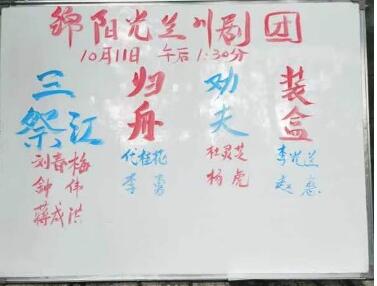 绵阳光兰川剧团
10月11日 午后1:30分
三祭江 归舟 劝夫 装盒
刘春梅 代桂花 杜灵芝 李光兰
钟伟 李勇 杨虎 赵
蒋成洪